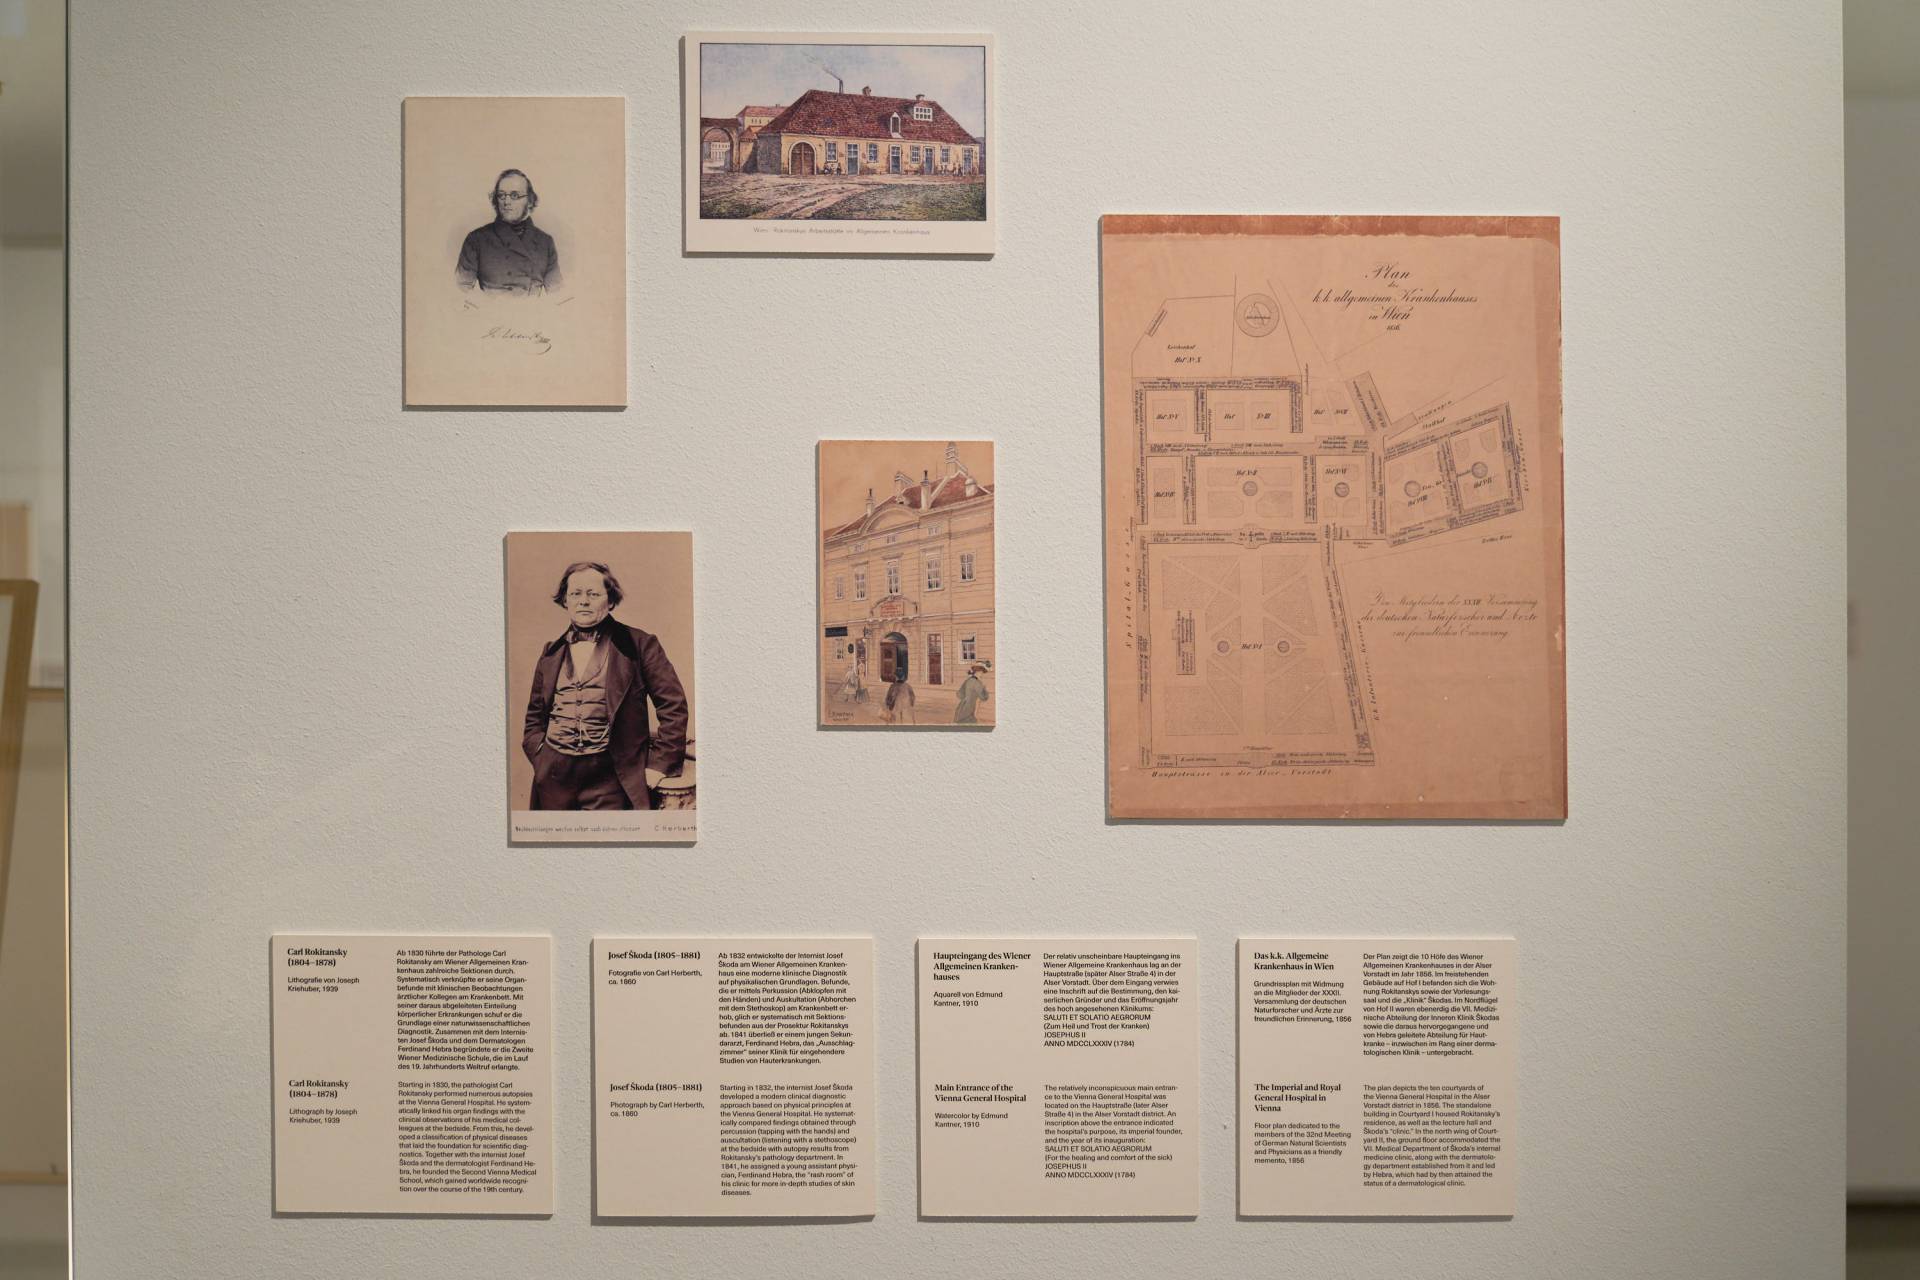 Wien: Rokitanskys Arbeitsstätte im Allgemeinen Krankenhaus
Plan
des
k.k. allgemeinen Krankenhauses
in Wien
1856.
Leichenhof
Hof No X
Hof No V
Hof
No III
Hof
No VII
Stallhof
Hof No IV
Hof No II
Hof No VI
Hof No I
Spital-Gasse
Den Mitgliedern der XXXII. Versammlung
der deutschen Naturforscher und Aerzte
zur freundlichen Erinnerung.
Hauptstrasse in der Alser-Vorstadt
C. Herberth
Carl Rokitansky
(1804–1878)
Lithografie von Joseph
Kriehuber, 1939
Ab 1830 führte der Pathologe Carl
Rokitansky am Wiener Allgemeinen Kran-
kenhaus zahlreiche Sektionen durch.
Systematisch verknüpfte er seine Organ-
befunde mit klinischen Beobachtungen
ärztlicher Kollegen am Krankenbett. Mit
seiner daraus abgeleiteten Einteilung
körperlicher Erkrankungen schuf er die
Grundlage einer naturwissenschaftlichen
Diagnostik. Zusammen mit dem Internis-
ten Josef Škoda und dem Dermatologen
Ferdinand Hebra begründete er die Zweite
Wiener Medizinische Schule, die im Lauf
des 19. Jahrhunderts Weltruf erlangte.
Carl Rokitansky
(1804–1878)
Lithograph by Joseph
Kriehuber, 1939
Starting in 1830, the pathologist Carl
Rokitansky performed numerous autopsies
at the Vienna General Hospital. He system-
atically linked his organ findings with the
clinical observations of his medical col-
leagues at the bedside. From this, he devel-
oped a classification of physical diseases
that laid the foundation for scientific diag-
nostics. Together with the internist Josef
Škoda and the dermatologist Ferdinand He-
bra, he founded the Second Vienna Medical
School, which gained worldwide recogni-
tion over the course of the 19th century.
Josef Škoda (1805–1881)
Fotografie von Carl Herberth,
ca. 1860
Ab 1832 entwickelte der Internist Josef
Škoda am Wiener Allgemeinen Kranken-
haus eine moderne klinische Diagnostik
auf physikalischen Grundlagen. Befunde,
die er mittels Perkussion (Abklopfen mit
den Händen) und Auskultation (Abhorchen
mit dem Stethoskop) am Krankenbett er-
hob, glich er systematisch mit Sektions-
befunden aus der Prosektur Rokitanskys
ab. 1841 überließ er einem jungen Sekun-
dararzt, Ferdinand Hebra, das „Ausschlag-
zimmer“ seiner Klinik für eingehendere
Studien von Hauterkrankungen.
Josef Škoda (1805–1881)
Photograph by Carl Herberth,
ca. 1860
Starting in 1832, the internist Josef Škoda
developed a modern clinical diagnostic
approach based on physical principles at
the Vienna General Hospital. He systemat-
ically compared findings obtained through
percussion (tapping with the hands) and
auscultation (listening with a stethoscope)
at the bedside with autopsy results from
Rokitansky's pathology department. In
1841, he assigned a young assistant physi-
cian, Ferdinand Hebra, the "rash room" of
his clinic for more in-depth studies of skin
diseases.
Haupteingang des Wiener
Allgemeinen Kranken-
hauses
Aquarell von Edmund
Kantner, 1910
Der relativ unscheinbare Haupteingang ins
Wiener Allgemeine Krankenhaus lag an der
Hauptstraße (später Alser Straße 4) in der
Alser Vorstadt. Über dem Eingang verwies
eine Inschrift auf die Bestimmung, den kai-
serlichen Gründer und das Eröffnungsjahr
des hoch angesehenen Klinikums:
SALUTI ET SOLATIO AEGRORUM
(Zum Heil und Trost der Kranken)
JOSEPHUS II
ANNO MDCCLXXXIV (1784)
Main Entrance of the
Vienna General Hospital
Watercolor by Edmund
Kantner, 1910
The relatively inconspicuous main entran-
ce to the Vienna General Hospital was
located on the Hauptstraße (later Alser
Straße 4) in the Alser Vorstadt district. An
inscription above the entrance indicated
the hospital's purpose, its imperial founder,
and the year of its inauguration:
SALUTI ET SOLATIO AEGRORUM
(For the healing and comfort of the sick)
JOSEPHUS II
ANNO MDCCLXXXIV (1784)
Das k.k. Allgemeine
Krankenhaus in Wien
Grundrissplan mit Widmung
an die Mitglieder der XXXII.
Versammlung der deutschen
Naturforscher und Ärzte zur
freundlichen Erinnerung, 1856
Der Plan zeigt die 10 Höfe des Wiener
Allgemeinen Krankenhauses in der Alser
Vorstadt im Jahr 1856. Im freistehenden
Gebäude auf Hof I befanden sich die Woh-
nung Rokitanskys sowie der Vorlesungs-
saal und die „Klinik“ Škodas. Im Nordflügel
von Hof II waren ebenerdig die VII. Medizi-
nische Abteilung der Inneren Klinik Škodas
sowie die daraus hervorgegangene und
von Hebra geleitete Abteilung für Haut-
kranke – inzwischen im Rang einer derma-
tologischen Klinik – untergebracht.
The Imperial and Royal
General Hospital in
Vienna
Floor plan dedicated to the
members of the 32nd Meeting
of German Natural Scientists
and Physicians as a friendly
memento, 1856
The plan depicts the ten courtyards of
the Vienna General Hospital in the Alser
Vorstadt district in 1856. The standalone
building in Courtyard I housed Rokitansky's
residence, as well as the lecture hall and
Škoda's "clinic." In the north wing of Court-
yard II, the ground floor accommodated the
VII. Medical Department of Škoda's internal
medicine clinic, along with the dermatolo-
gy department established from it and led
by Hebra, which had by then attained the
status of a dermatological clinic.